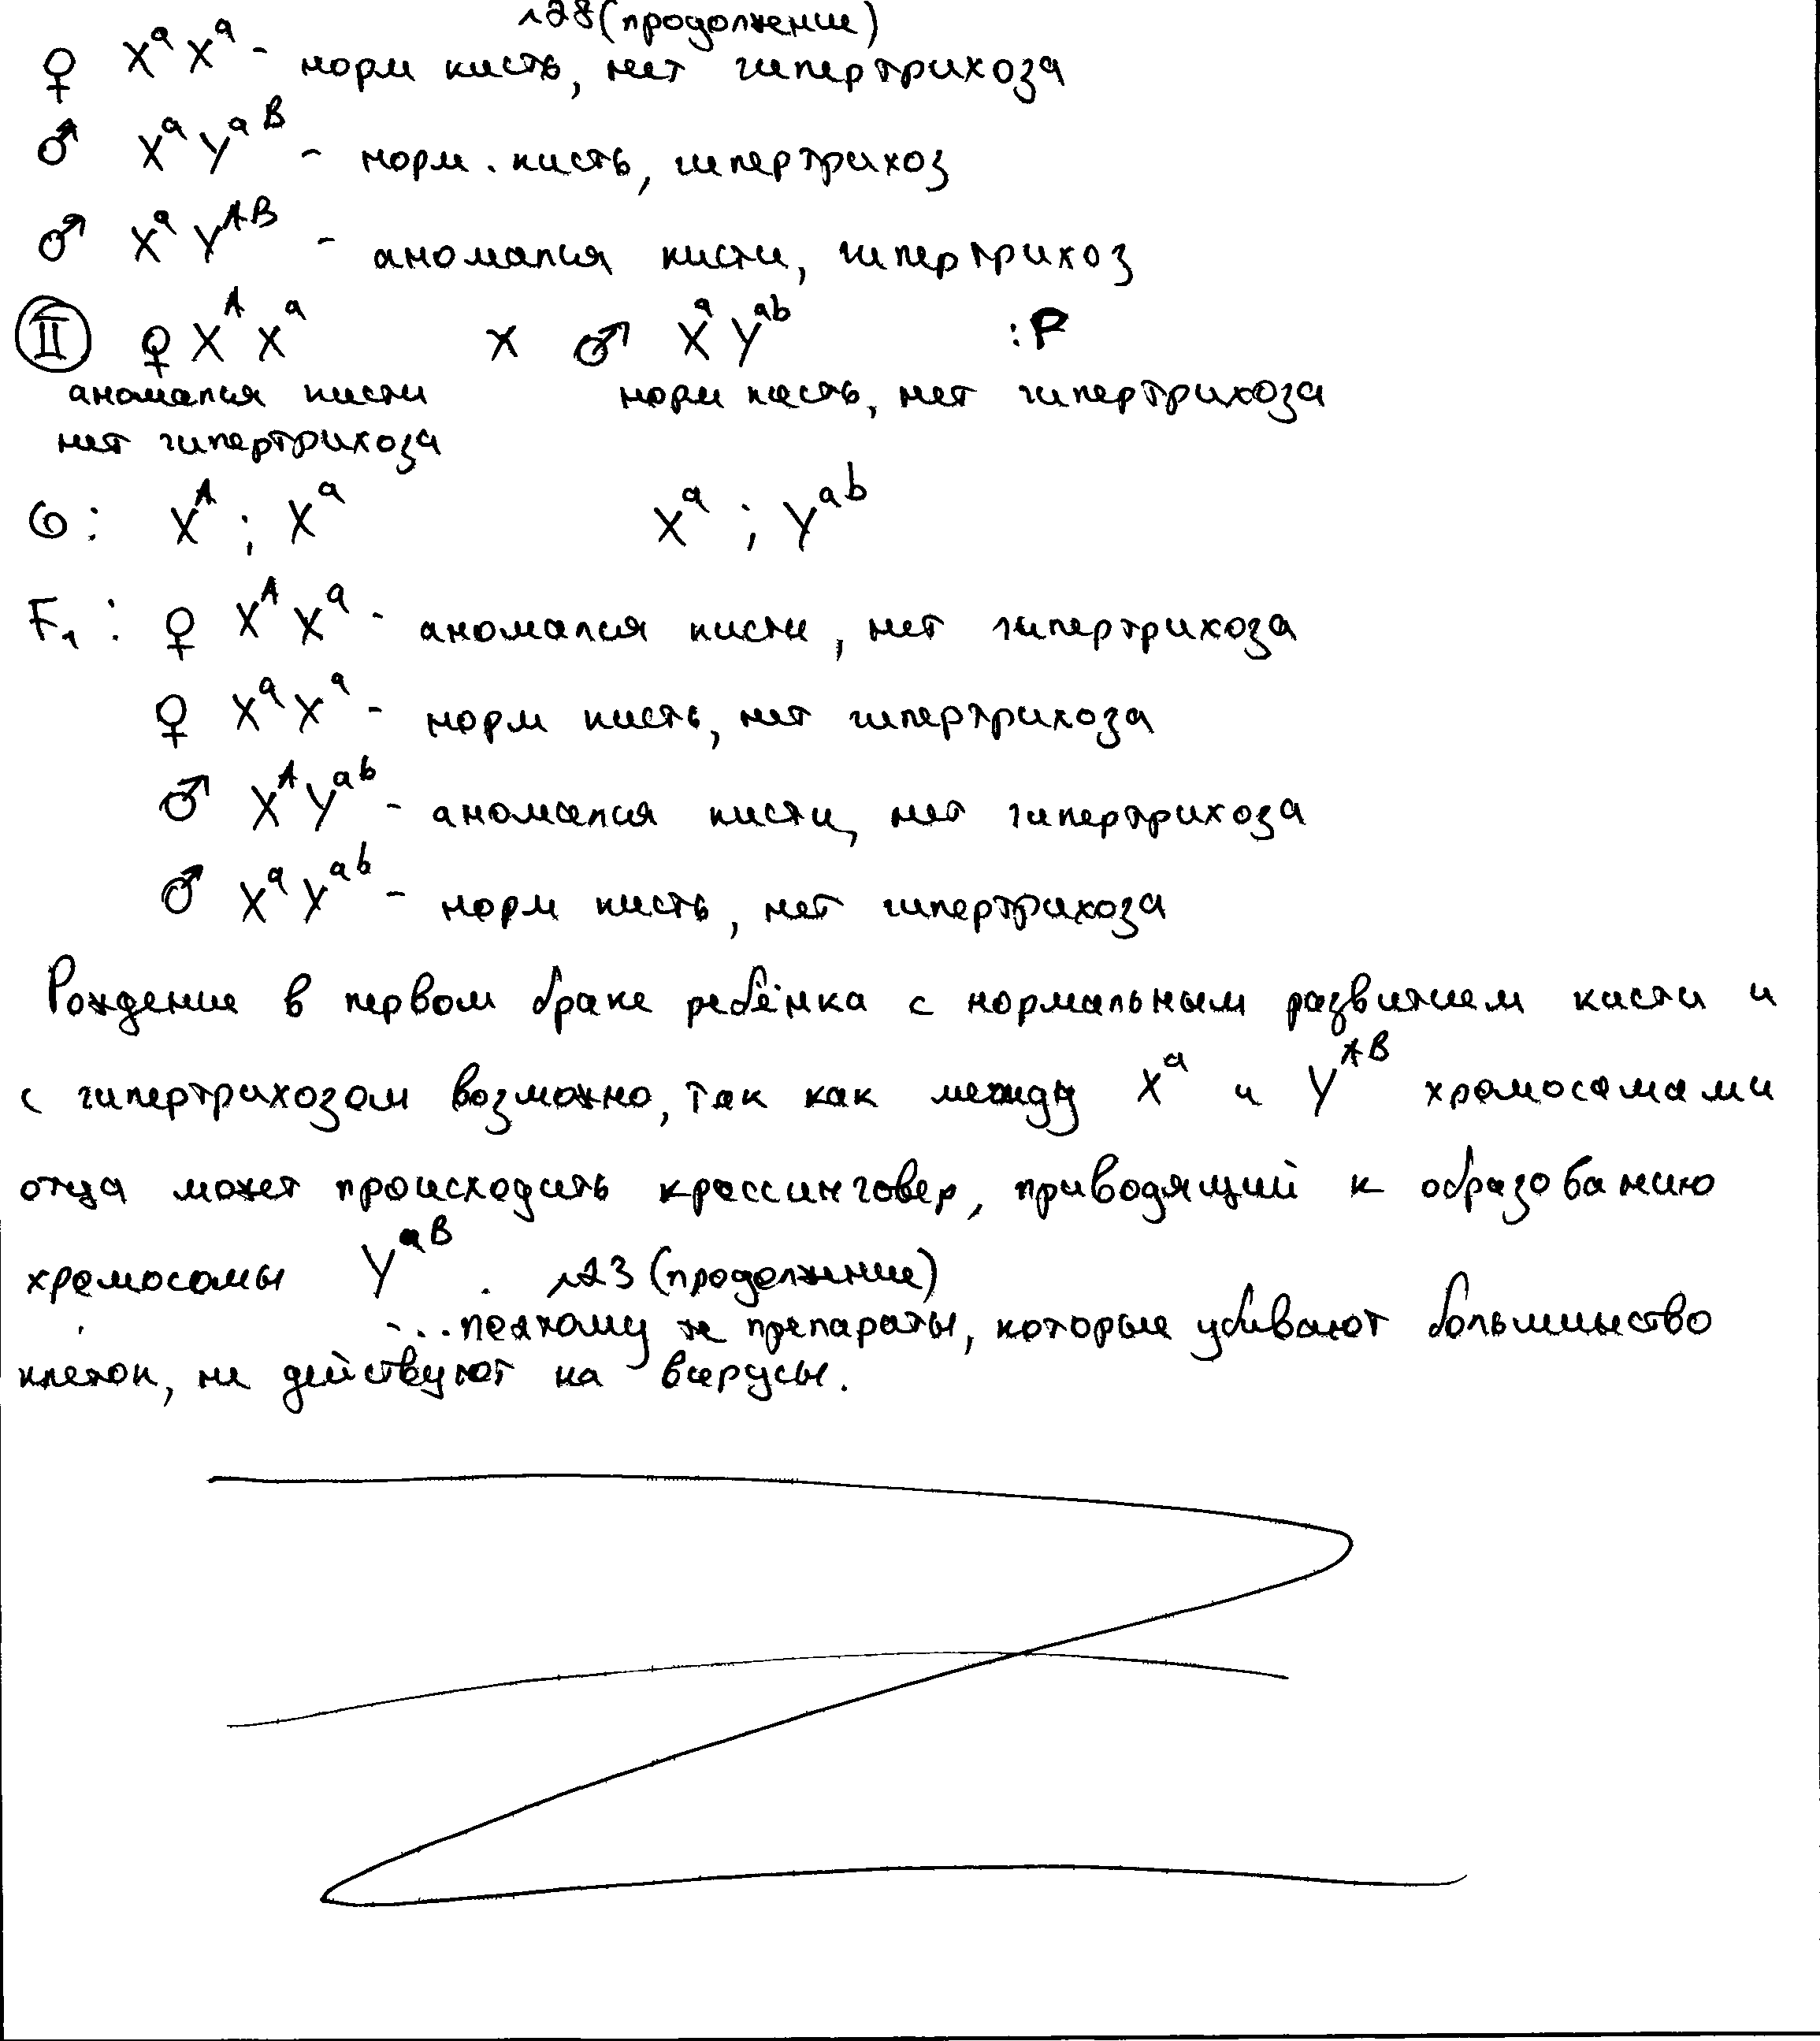 №28 (продолжение)
♀ XᵃXᵃ - норм кисть, нет гипертрихоза
♂ XᵃYᵃᴮ - норм. кисть, гипертрихоз
♂ XᵃYᴬᴮ - аномалия кисти, гипертрихоз
II ♀ XᴬXᵃ x ♂ XᵃYᵃᵇ :P
аномалия кисти норм кисть, нет гипертрихоза
нет гипертрихоза
G: Xᴬ; Xᵃ Xᵃ; Yᵃᵇ
F₁: ♀ XᴬXᵃ - аномалия кисти, нет гипертрихоза
♀ XᵃXᵃ - норм кисть, нет гипертрихоза
♂ XᴬYᵃᵇ - аномалия кисти, нет гипертрихоза
♂ XᵃYᵃᵇ - норм кисть, нет гипертрихоза
Рождение в первом браке ребёнка с нормальным развитием кисти и
с гипертрихозом возможно, так как между Xᵃ и Yᴬᴮ хромосомами
отца может происходить кроссинговер, приводящий к образованию
хромосомы Yᵃᴮ. №23 (продолжение)
...поэтому те препараты, которые убивают большинство
клеток, не действуют на вирусы.